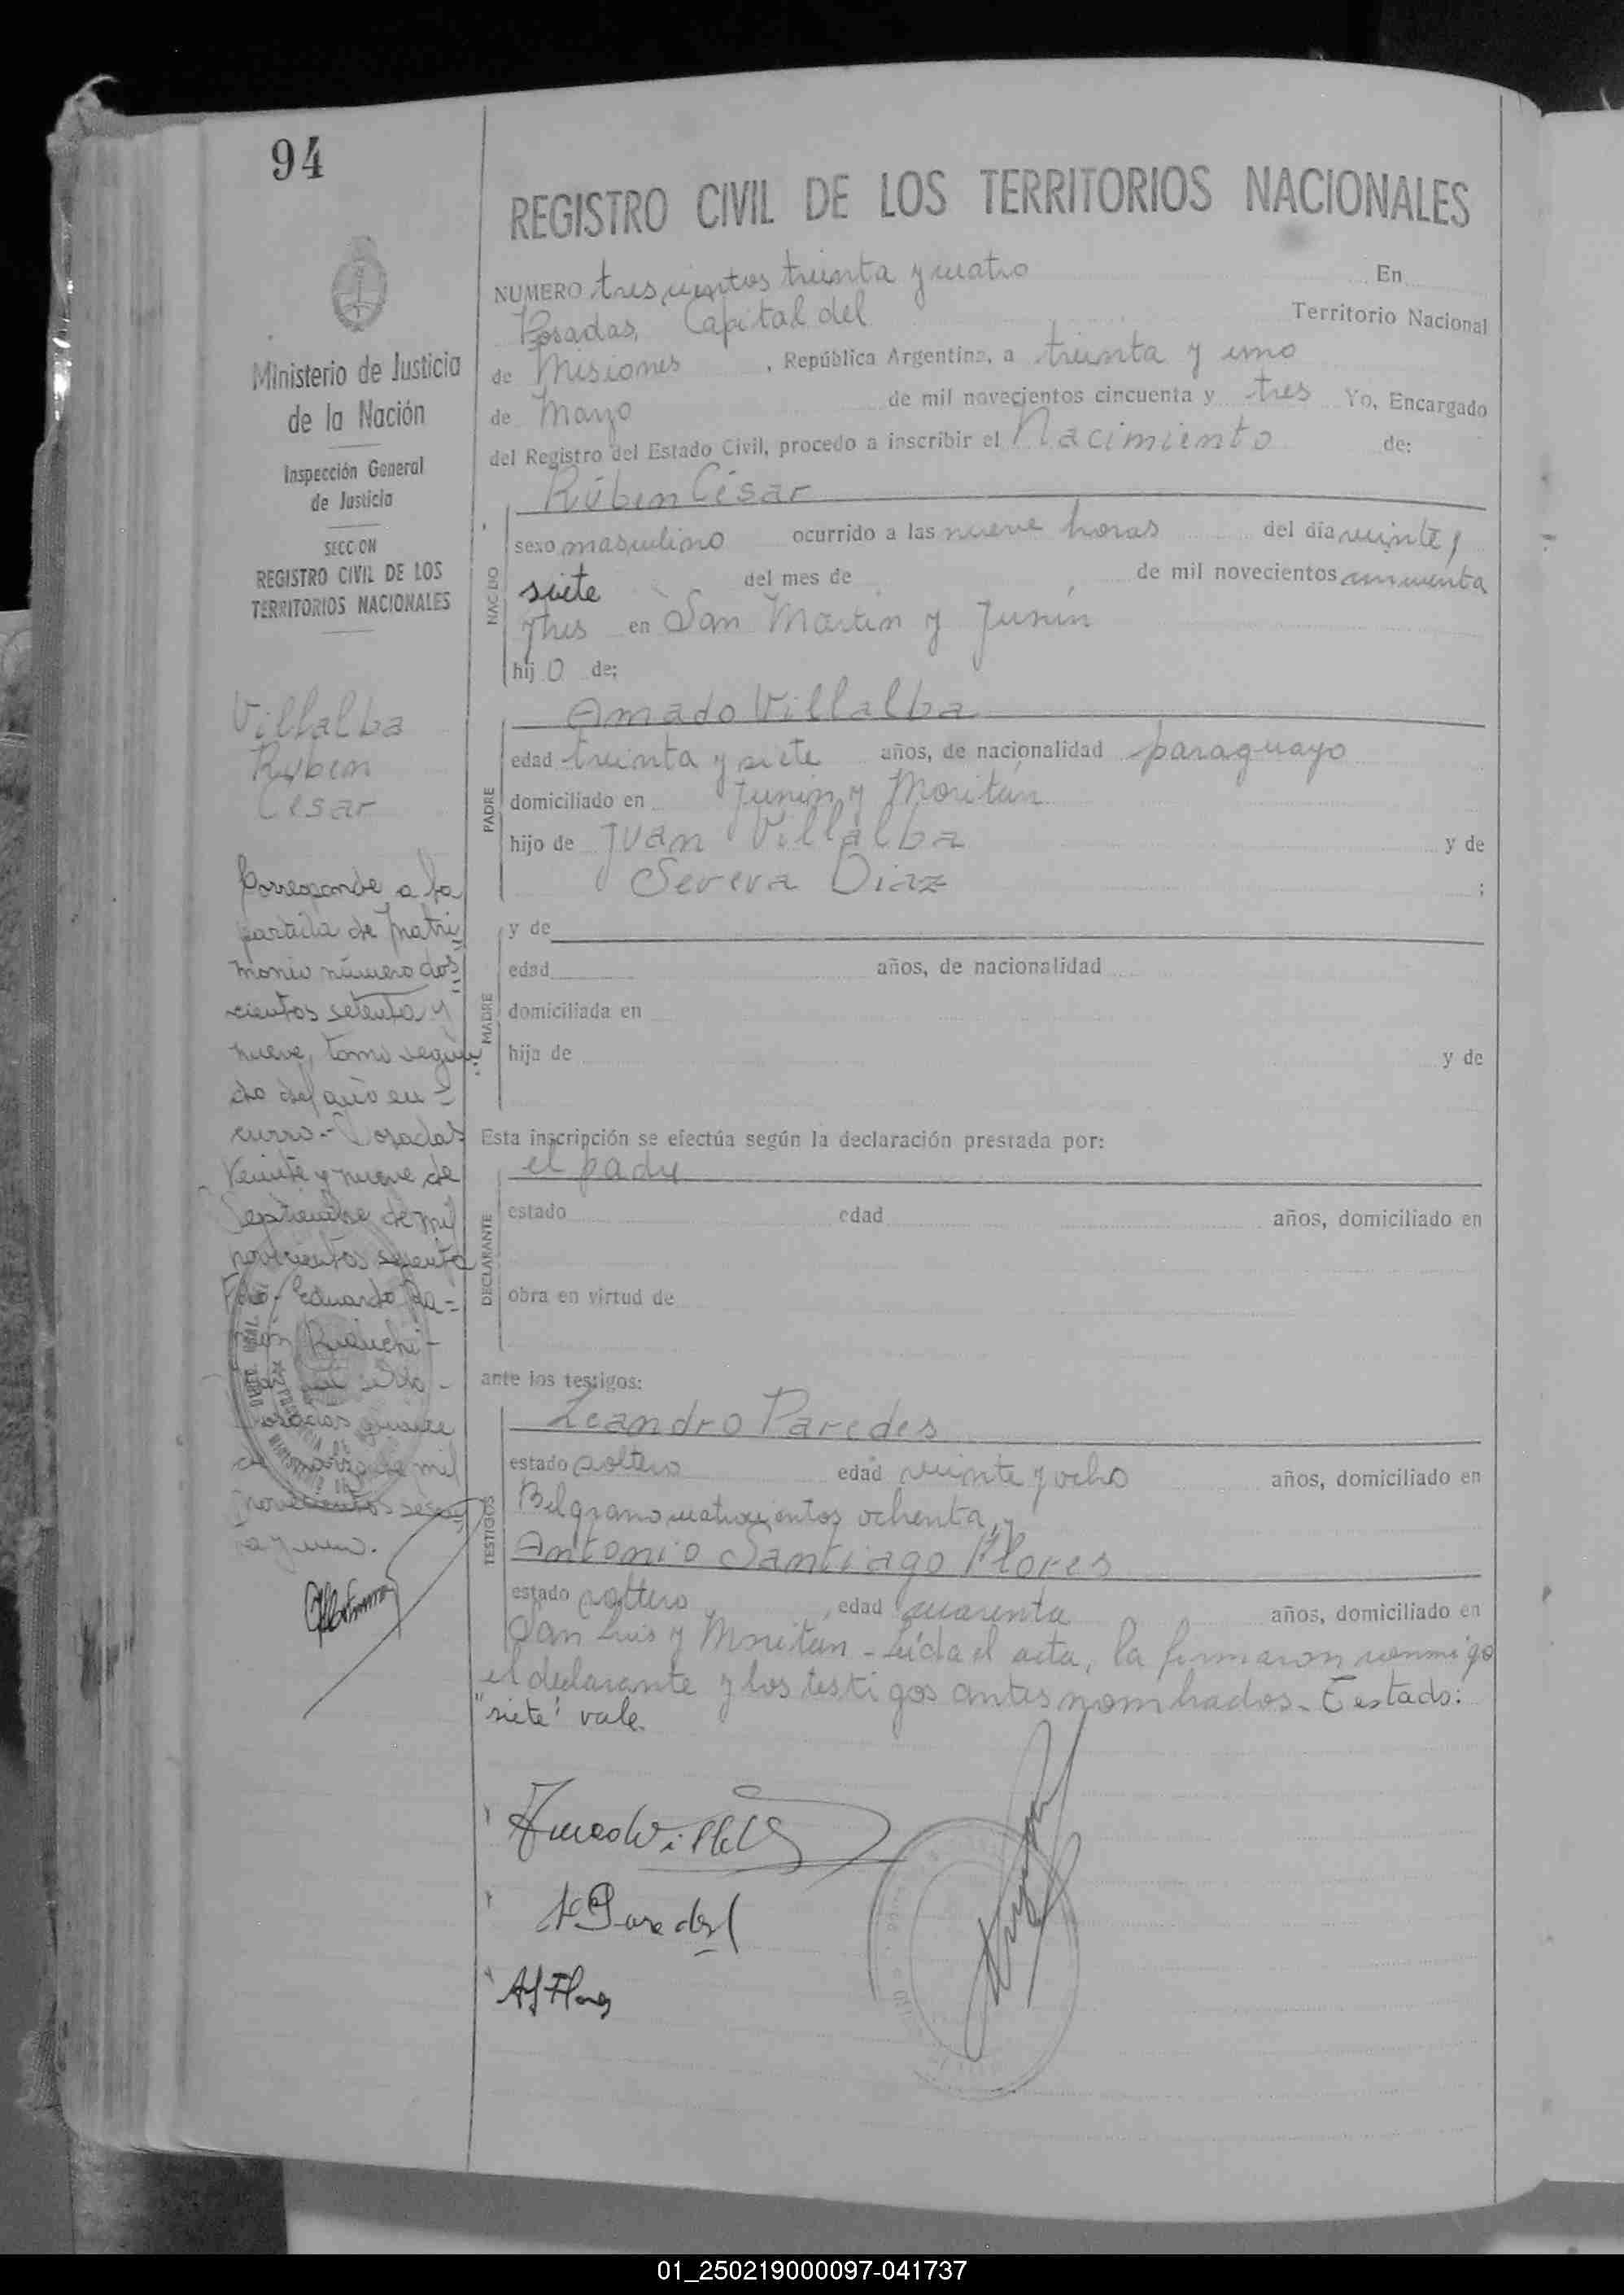 94
REGISTRO CIVIL DE LOS TERRITORIOS NACIONALES
Ministerio de Justicia
de la Nación
Inspección General
de Justicia
SECCION
REGISTRO CIVIL DE LOS
TERRITORIOS NACIONALES
Villalba
Rúben
César
Corresponde a la
partida de matri
monio número dos
cientos setenta y
nueve, tomo segun
do del año en
curso - Posadas
Veinte y nueve de
Septiembre de mil
novecientos sesenta
Eduardo Ra=
món
Posadas quince
de marzo de mil
novecientos sesen
ta y uno.
NUMERO trescientos treinta y cuatro En
Posadas, Capital del Territorio Nacional
de Misiones , República Argentina, a treinta y uno
de Marzo de mil novecientos cincuenta y tres Yo, Encargado
del Registro del Estado Civil, procedo a inscribir el Nacimiento de:
Rúben César
NACIDO
sexo masculino ocurrido a las nueve horas del día veinte y
siete del mes de de mil novecientos cincuenta
y tres en San Martin y Junín
hij o de:
Amado Villalba
PADRE
edad treinta y siete años, de nacionalidad paraguayo
domiciliado en Junin y Moritán
hijo de Juan Villalba y de
Severa Diaz ;
MADRE
y de
edad años, de nacionalidad
domiciliada en
hija de y de
Esta inscripción se efectúa según la declaración prestada por:
el padre
DECLARANTE
estado edad años, domiciliado en
obra en virtud de
ante los testigos:
Leandro Paredes
TESTIGOS
estado soltero edad veinte y ocho años, domiciliado en
Belgrano cuatrocientos ochenta, y
Antonio Santiago Flores
estado soltero edad cuarenta años, domiciliado en
San Luis y Moritan - Leída el acta, la firmaron conmigo
el declarante y los testigos antes nombrados. Testado:
"siete" vale.
L Paredes
AS Flores
01_250219000097-041737